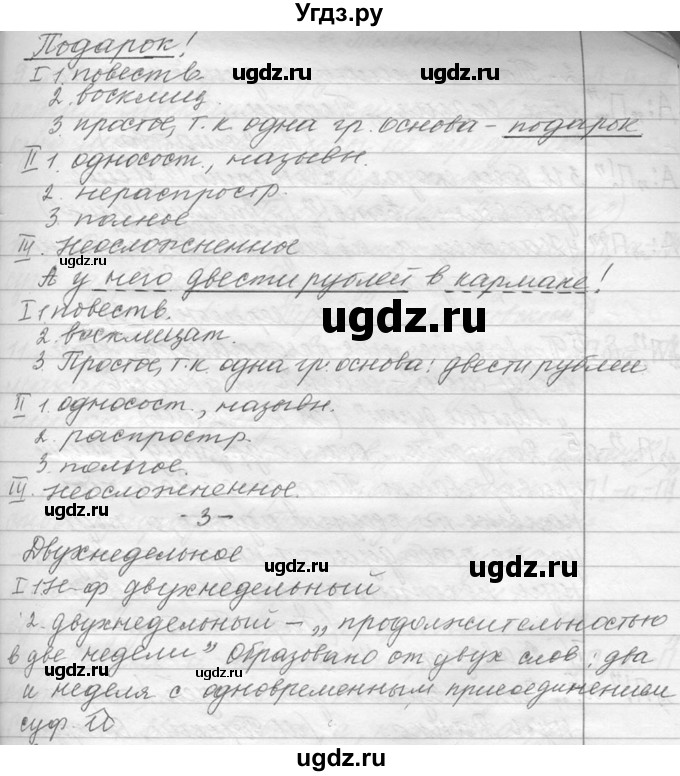 Угдз.ру
Подарок!
I 1. повеств. ugdz.ru ugdz.ru
2. восклиц.
3. простое, т.к. одна гр. основа – подарок
II 1. односост., назывн.
2. нераспростр.
3. полное
IV. неосложненное
ugdz.ru
А у него двести рублей в кармане!
I 1 повеств. ugdz.ru
2. восклицат.
3. Простое, т.к. одна гр. основа: двести рублей
II 1. односост., назывн.
2. распростр.
3. полное.
IV. неосложненное.
ugdz.ru - 3 - ugdz.ru
Двухнедельное ugdz.ru
I 1 Н-ф двухнедельный ugdz.ru
2. двухнедельный – „продолжительностью
в две недели” Образовано от двух слов: два
и неделя с одновременным присоединением
суф. н
ugdz.ru ugdz.ru
ugdz.ru